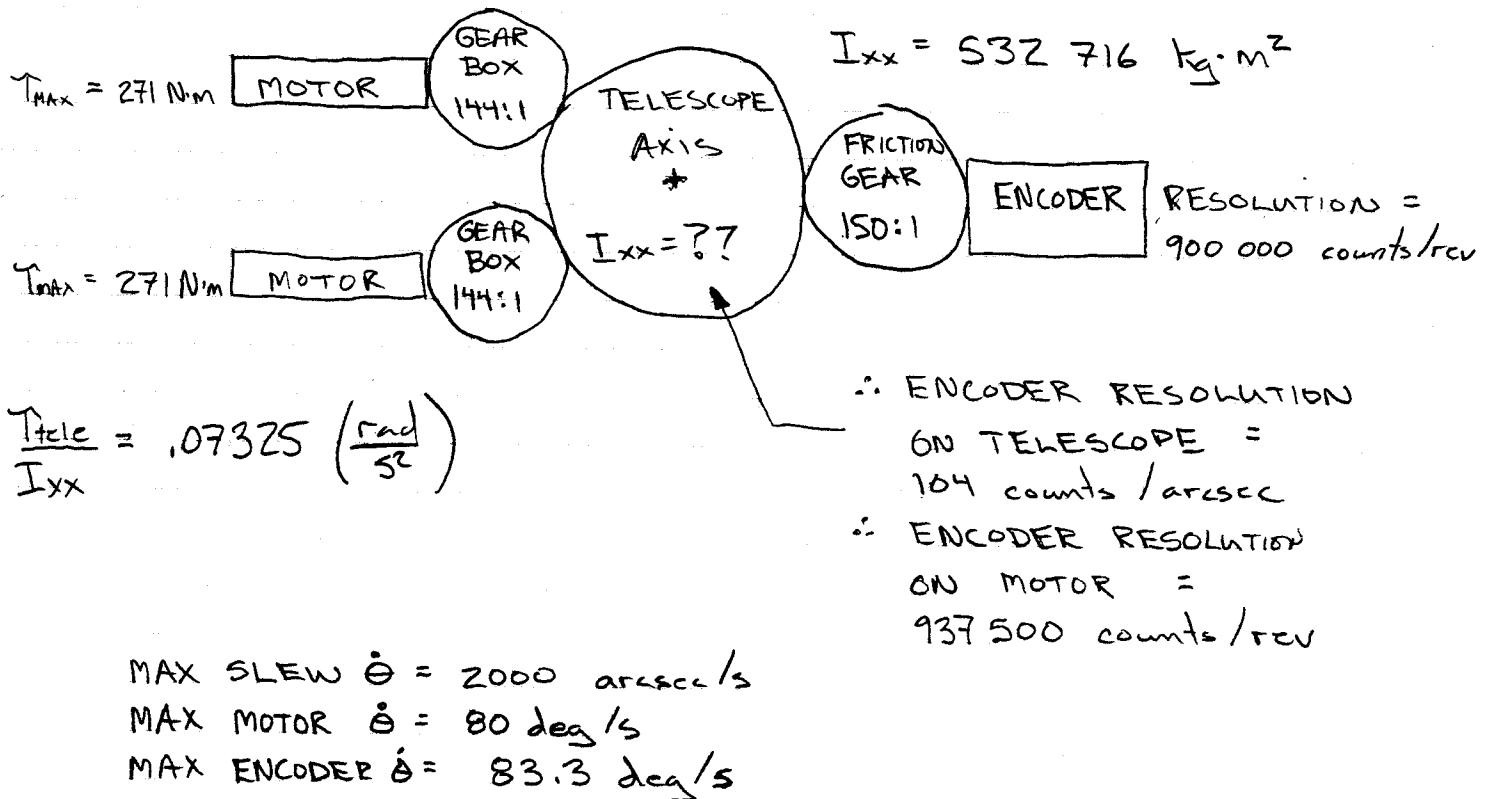 T_MAX = 271 N·m
MOTOR
GEAR
BOX
144:1
T_MAX = 271 N·m
MOTOR
GEAR
BOX
144:1
TELESCOPE
AXIS
+
Ixx = ??
Ixx = 532 716 kg·m²
FRICTION
GEAR
150:1
ENCODER
RESOLUTION =
900 000 counts/rev
T_tele / Ixx = .07325 (rad/s²)
∴ ENCODER RESOLUTION
ON TELESCOPE =
104 counts/arcsec
∴ ENCODER RESOLUTION
ON MOTOR =
937 500 counts/rev
MAX SLEW θ̇ = 2000 arcsec/s
MAX MOTOR θ̇ = 80 deg/s
MAX ENCODER θ̇ = 83.3 deg/s